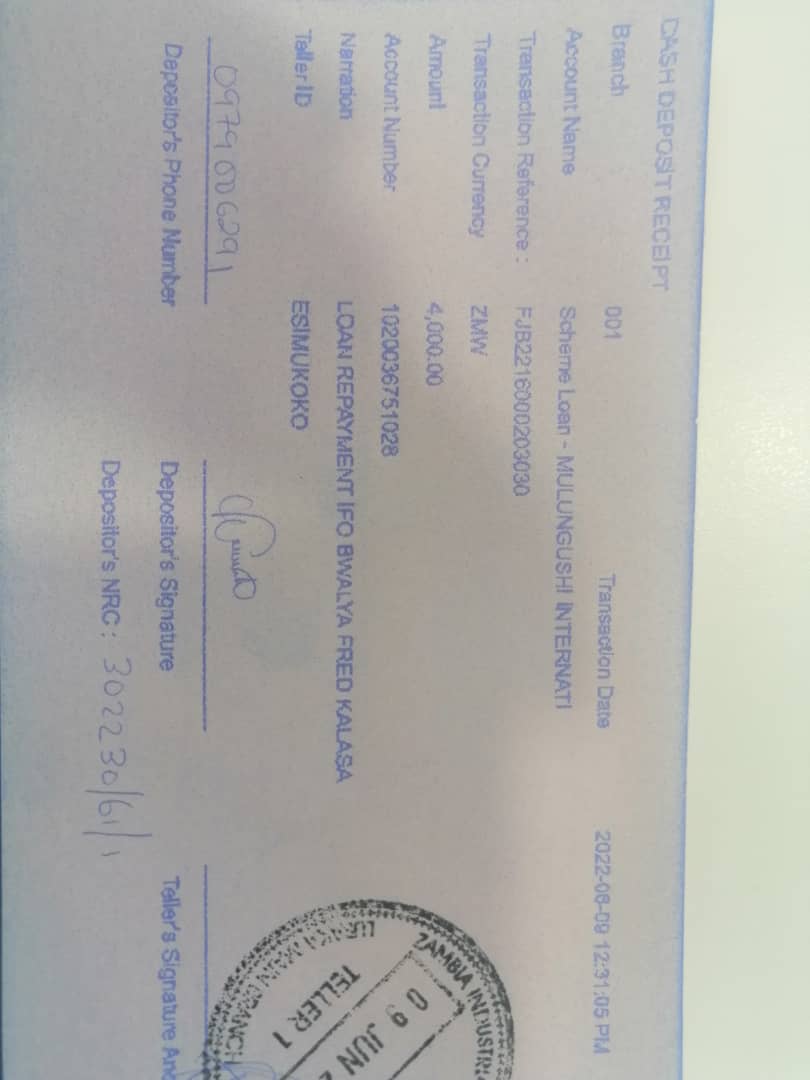 CASH DEPOSIT RECEIPT
Branch 001 Transaction Date 2022-06-09 12:31:05 PM
Account Name Scheme Loan - MULUNGUSHI INTERNATI
Transaction Reference : FJB2216000203030
Transaction Currency ZMW
Amount 4,000.00
Account Number 1020036751028
Narration LOAN REPAYMENT IFO BWALYA FRED KALASA
Teller ID ESIMUKOKO
0979006291
Depositor's Phone Number Depositor's Signature Teller's Signature And
Depositor's NRC : 302230/61/1
ZAMBIA INDUSTRI
09 JUN
TELLER 1
LUSAKA MAIN BRANCH